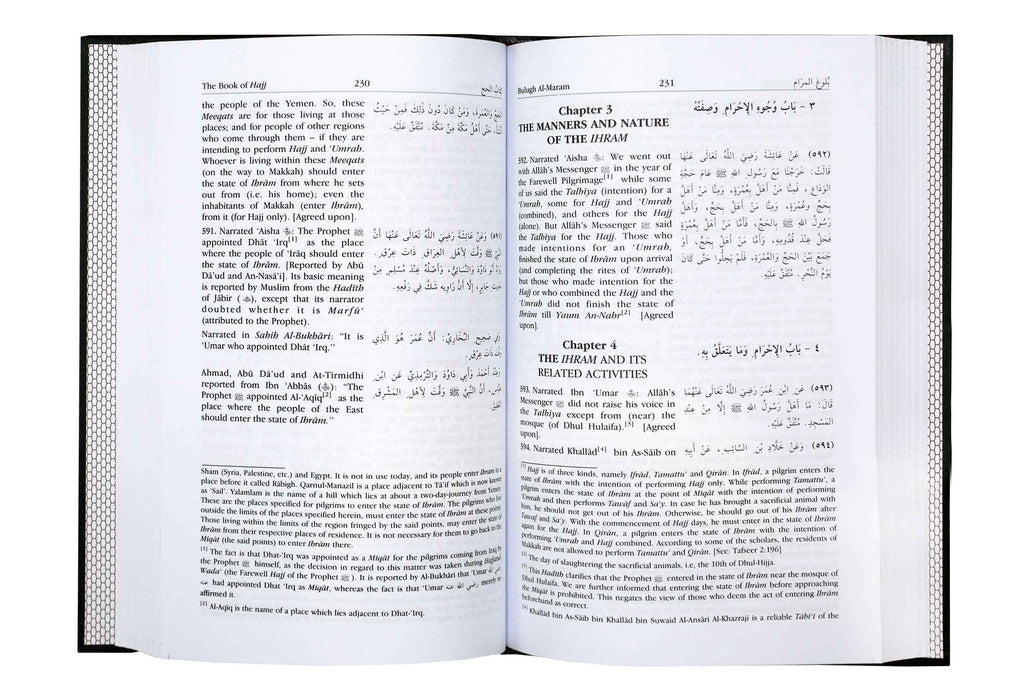 The Book of Hajj
230
كتاب الحج
the people of the Yemen. So, these
Meeqats are for those living at those
places; and for people of other regions
who come through them – if they are
intending to perform Hajj and ‘Umrah.
Whoever is living within these Meeqats
(on the way to Makkah) should enter
the state of Ihram from where he sets
out from (i.e. his home); even the
inhabitants of Makkah (enter Ihrâm),
from it (for Hajj only). [Agreed upon].
الحَجَّ وَالعُمْرَةَ، وَمَنْ كَانَ دُونَ ذٰلِكَ فَمِنْ حَيْثُ
حَتَّى أَهْلُ مَكَّةَ مِنْ مَكَّةَ. مُتَّفَقٌ عَلَيْهِ.
591. Narrated ‘Aisha: The Prophet ﷺ
appointed Dhât ‘Irq[1] as the place
where the people of ‘Irâq should enter
the state of Ihrâm. [Reported by Abû
Dâ’ud and An-Nasâ’i]. Its basic meaning
is reported by Muslim from the Hadîth
of Jâbir ( ), except that its narrator
doubted whether it is Marfû‘
(attributed to the Prophet).
وَعَنْ عَائِشَةَ رَضِيَ اللَّهُ تَعَالَى عَنْهَا أَنَّ
ﷺ وَقَّتَ لِأَهْلِ العِرَاقِ ذَاتَ عِرْقٍ.
أَبُو دَاوُدَ وَالنَّسَائِيُّ، وَأَصْلُهُ عِنْدَ مُسْلِمٍ مِنْ
جَابِرٍ، إِلَّا أَنَّ رَاوِيَهُ شَكَّ فِي رَفْعِهِ.
Narrated in Sahih Al-Bukhâri: “It is
‘Umar who appointed Dhât ‘Irq.”
صَحِيحِ البُخَارِيِّ: أَنَّ عُمَرَ هُوَ الَّذِي
وَقَّتَ ذَاتَ عِرْقٍ.
Ahmad, Abû Dâ’ud and At-Tirmidhi
reported from Ibn ‘Abbâs ( ): “The
Prophet ﷺ appointed Al-‘Aqîq[2] as the
place where the people of the East
should enter the state of Ihrâm.”
أَحْمَدَ وَأَبِي دَاوُدَ وَالتِّرْمِذِيِّ عَنِ ابْنِ
أَنَّ النَّبِيَّ ﷺ وَقَّتَ لِأَهْلِ المَشْرِقِ
العَقِيقَ
Sham (Syria, Palestine, etc.) and Egypt. It is not in use today, and its people enter Ihram in a
place before it called Râbigh. Qarnul-Manazil is a place adjacent to Tâ’if which is now known
as ‘Sail’. Yalamlam is the name of a hill which lies at about a two-day-journey from Yemen
These are the places specified for pilgrims to enter the state of Ihram. The pilgrims who live
outside the limits of the places specified herein, must enter the state of Ihram at these points.
Those living within the limits of the region fringed by the said points, may enter the state of
Ihrâm from their respective places of residence. It is not necessary for them to go back to the
Miqât (the said points) to enter Ihrâm there.
[1] The fact is that Dhat-‘Irq was appointed as a Miqât for the pilgrims coming from Iraq by
the Prophet ﷺ himself, as the decision in regard to this matter was taken during Hajjatul-
Wada‘ (the Farewell Hajj of the Prophet ﷺ). It is reported by Al-Bukhâri that ‘Umar رضي الله
عنه had appointed Dhat ‘Irq as Miqât, whereas the fact is that ‘Umar رضي الله عنه merely re-
affirmed it.
[2] Al-Aqîq is the name of a place which lies adjacent to Dhat-‘Irq.
Bulugh Al-Maram
231
بُلُوغُ المَرَام
Chapter 3
THE MANNERS AND NATURE
OF THE IHRAM
٣ - بَابُ وُجُوهِ الإِحْرَامِ وَصِفَتُهُ
592. Narrated ‘Aisha: We went out
with Allâh’s Messenger ﷺ in the year of
the Farewell Pilgrimage[1] while some
of us said the Talbiya (intention) for a
‘Umrah, some for Hajj and ‘Umrah
(combined), and others for the Hajj
(alone). But Allâh’s Messenger ﷺ said
the Talbiya for the Hajj. Those who
made intentions for an ‘Umrah,
finished the state of Ihrâm upon arrival
(and completing the rites of ‘Umrah);
but those who made intention for the
Hajj or who combined the Hajj and the
‘Umrah did not finish the state of
Ihrâm till Yaum An-Nahr[2] [Agreed
upon].
(٥٩٢) عَنْ عَائِشَةَ رَضِيَ اللَّهُ تَعَالَى عَنْهَا
قَالَتْ: خَرَجْنَا مَعَ رَسُولِ اللهِ ﷺ عَامَ حَجَّةِ
الوَدَاعِ، فَمِنَّا مَنْ أَهَلَّ بِعُمْرَةٍ، وَمِنَّا مَنْ أَهَلَّ
بِحَجٍّ وَعُمْرَةٍ، وَمِنَّا مَنْ أَهَلَّ بِحَجٍّ، وَأَهَلَّ
رَسُولُ اللهِ ﷺ بِالحَجِّ، فَأَمَّا مَنْ أَهَلَّ بِعُمْرَةٍ
فَحَلَّ عِنْدَ قُدُومِهِ، وَأَمَّا مَنْ أَهَلَّ بِحَجٍّ، أَوْ
جَمَعَ بَيْنَ الحَجِّ وَالعُمْرَةِ، فَلَمْ يَحِلُّوا حَتَّى كَانَ
يَوْمُ النَّحْرِ. مُتَّفَقٌ عَلَيْهِ.
Chapter 4
THE IHRAM AND ITS
RELATED ACTIVITIES
٤ - بَابُ الإِحْرَامِ وَمَا يَتَعَلَّقُ بِهِ.
593. Narrated Ibn ‘Umar: Allâh’s
Messenger ﷺ did not raise his voice in
the Talbiya except from (near) the
mosque (of Dhul Hulaifa).[3] [Agreed
upon].
(٥٩٣) عَنِ ابْنِ عُمَرَ رَضِيَ اللَّهُ تَعَالَى عَنْهُمَا
قَالَ: مَا أَهَلَّ رَسُولُ اللهِ ﷺ إِلَّا مِنْ عِنْدِ
المَسْجِدِ. مُتَّفَقٌ عَلَيْهِ.
594. Narrated Khallâd[4] bin As-Sâib on
(٥٩٤) وَعَنْ خَلَّادِ بْنِ السَّائِبِ، عَنْ أَبِيهِ
[1] Hajj is of three kinds, namely Ifrâd, Tamattu‘ and Qirân. In Ifrâd, a pilgrim enters the
state of Ihrâm with the intention of performing Hajj only. While performing Tamattu‘, a
pilgrim enters the state of Ihrâm at the point of Miqât with the intention of performing
‘Umrah and then performs Tawâf and Sa‘y. In case he has brought a sacrificial animal with
him, he should not get out of his Ihrâm. Otherwise, he should go out of his Ihrâm after
Tawaf and Sa‘y. With the commencement of Hajj days, he must enter in the state of Ihrâm
again for the Hajj. In Qirân, a pilgrim enters the state of Ihrâm with the intention of
performing ‘Umrah and Hajj combined. According to some of the scholars, the residents of
Makkah are not allowed to perform Tamattu‘ and Qirân. [See: Tafseer 2:196]
[2] The day of slaughtering the sacrificial animals, i.e, the 10th of Dhul-Hijja.
[3] This Hadîth clarifies that the Prophet ﷺ entered in the state of Ihrâm near the mosque of
Dhul Hulaifa. We are further informed that entering the state of Ihrâm before approaching
the Miqât is prohibited. This negates the view of those who deem the act of entering Ihrâm
beforehand as correct.
[4] Khallâd bin As-Sâib bin Khallâd bin Suwaid Al-Ansâri Al-Khazraji is a reliable Tâbi‘i of the